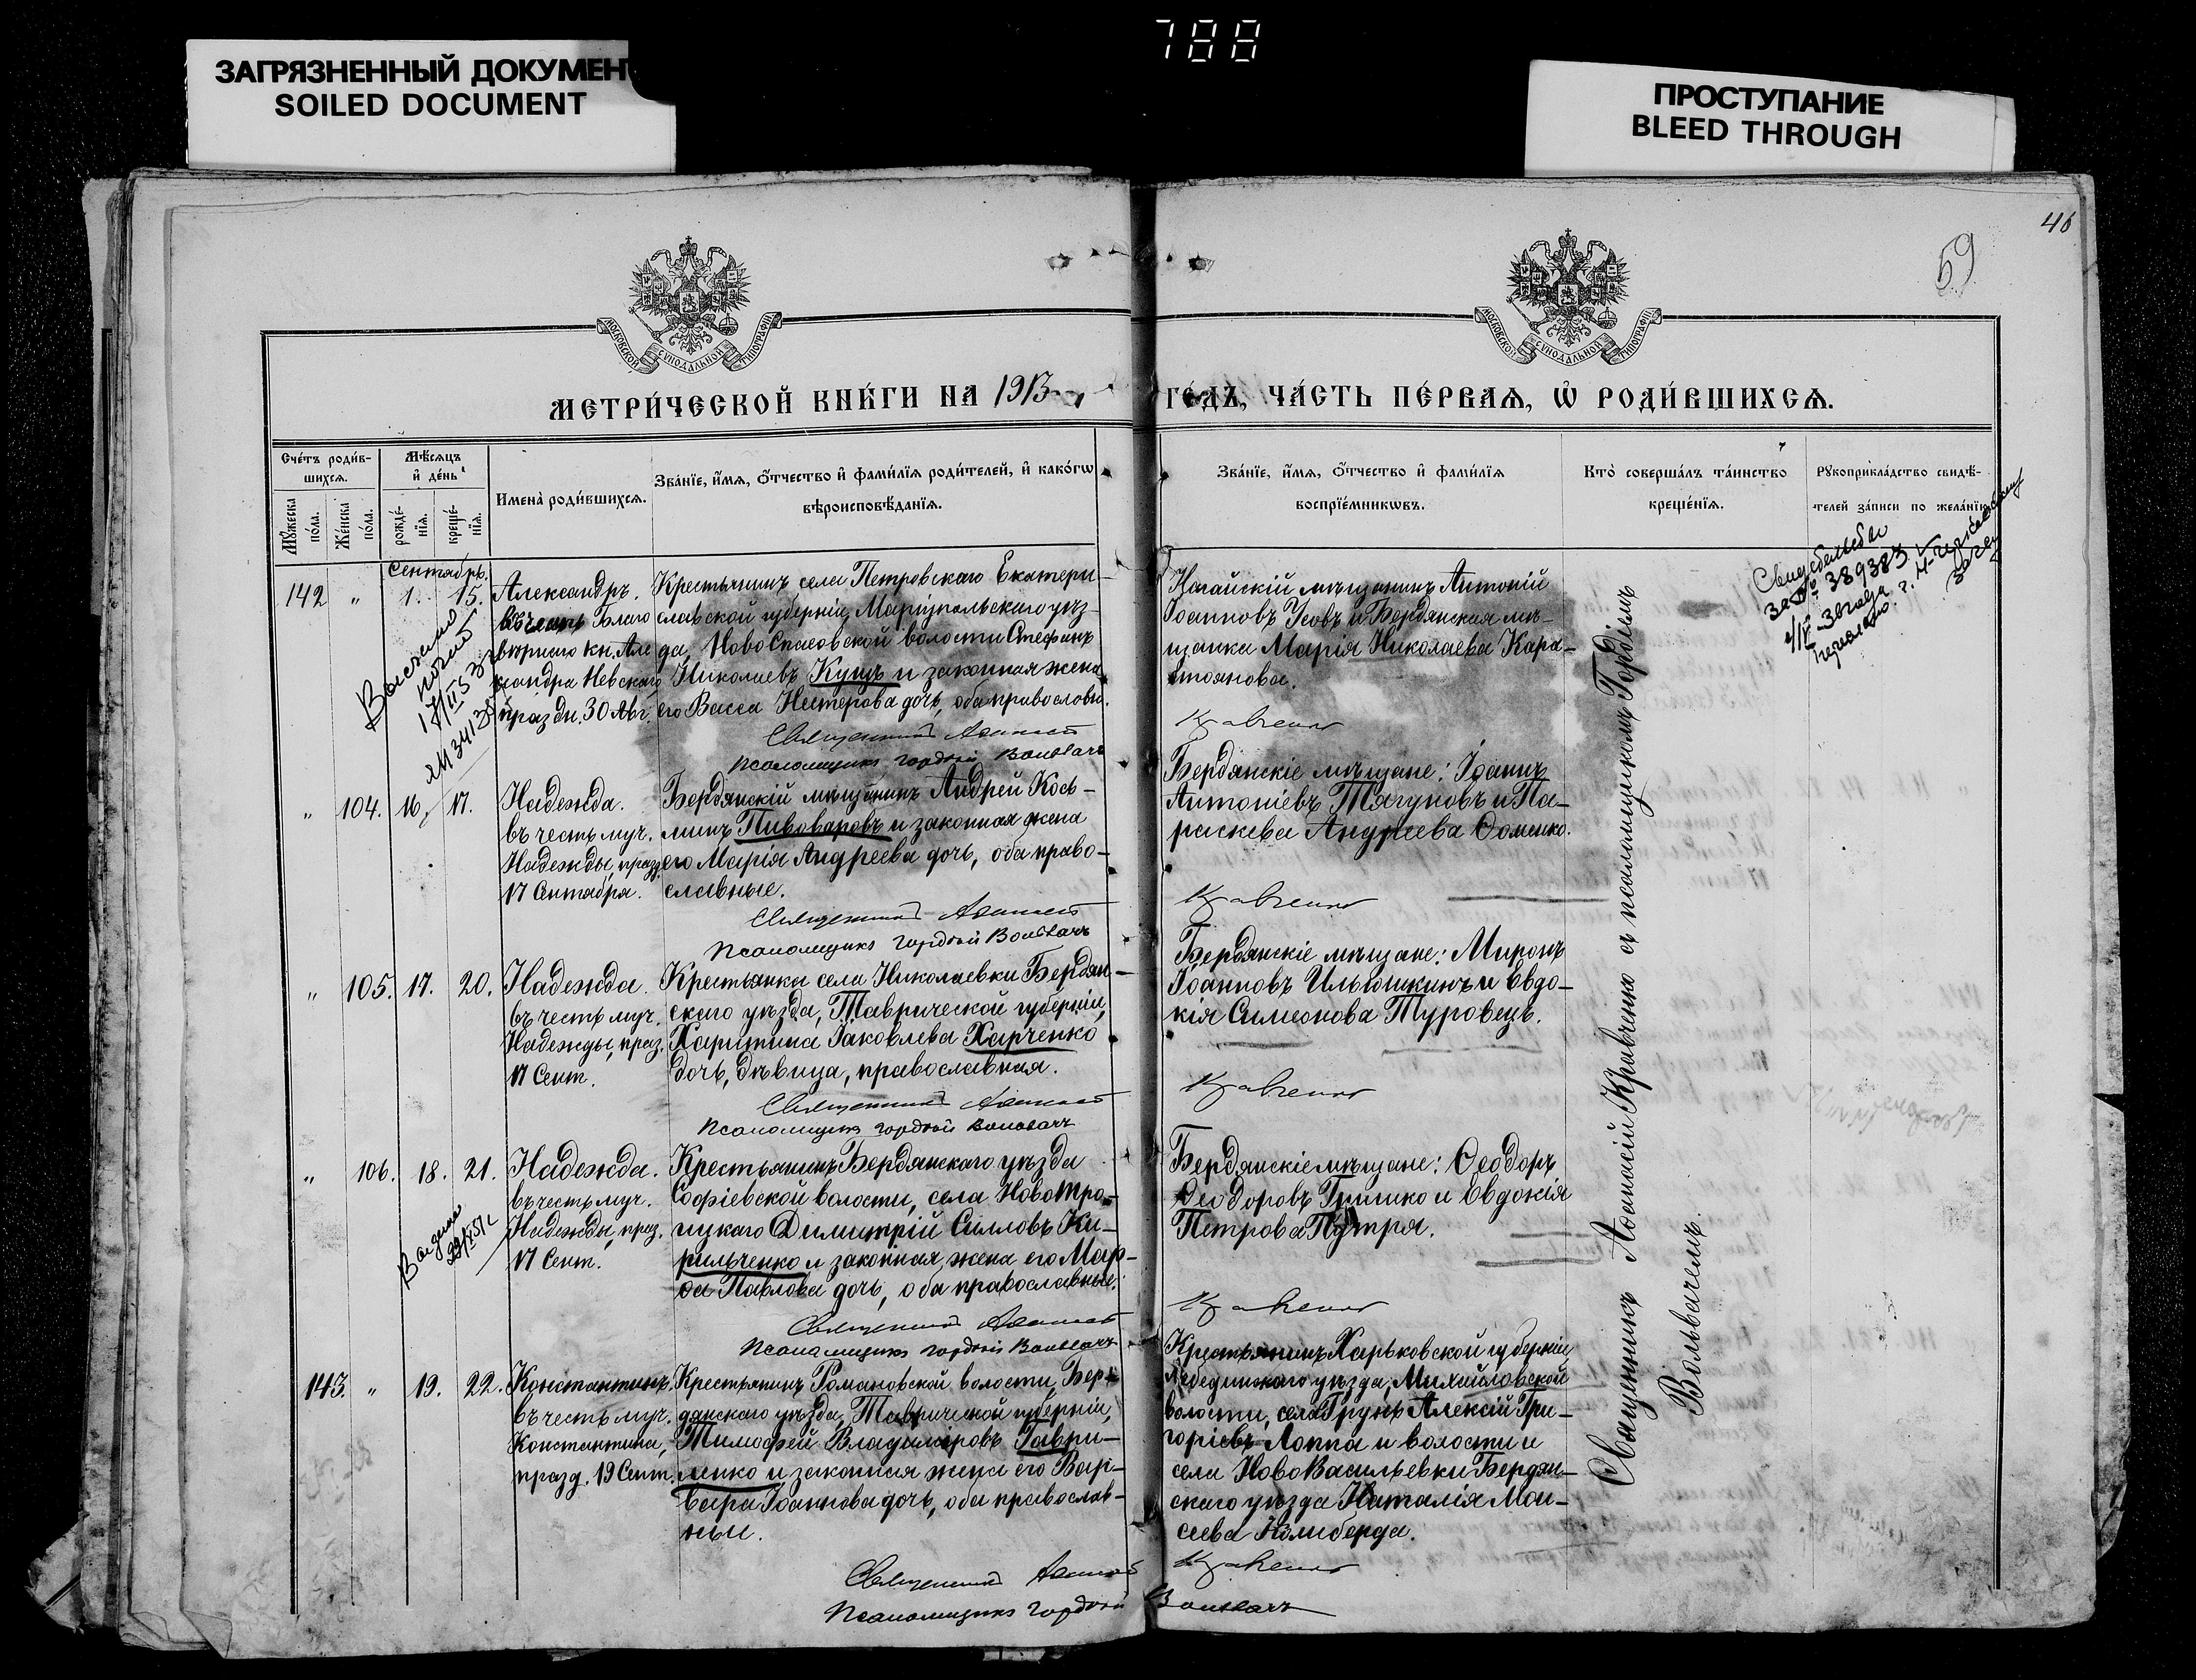 788
ЗАГРЯЗНЕННЫЙ ДОКУМЕН
SOILED DOCUMENT
ПРОСТУПАНИЕ
BLEED THROUGH
46
59
МОСКОВСКОЙ СѴНОДАЛЬНОЙ ТИПОГРАФІИ
МОСКОВСКОЙ СѴНОДАЛЬНОЙ ТИПОГРАФІИ
МЕТРИ́ЧЕСКОЙ КНИ́ГИ НА 1913 ГО́ДЪ, ЧА́СТЬ ПЕ́РВАѦ, Ѡ РОДИ́ВШИХСѦ.
Сче́тъ роди́в-
шихсѧ.
Мꙋ́жеска по́ла.
Же́нска по́ла.
Мѣ́сѧцъ
и҆ де́нь
рожде́-
нїѧ.
креще́-
нїѧ.
Имена̀ роди́вшихсѧ.
Зва́нїе, и҆́мѧ, ѻ҆́тчество и҆ фами́лїѧ роди́телей, и҆ како́гѡ
вѣроисповѣ́данїѧ.
Зва́нїе, и҆́мѧ, ѻ҆́тчество и҆ фами́лїѧ
воспрїе́мникѡвъ.
Кто̀ соверша́лъ та́инство
креще́нїѧ.
Рꙋкоприкла́дство свидѣ́-
телей за́писи по жела́нїю
Сентябрь.
142 " 1. 15. Александръ.
въ честь Благо
вѣрнаго кн. Але
ксандра Невскаго
праздн. 30 Авг.
Крестьянинъ села Петровскаго Екатери-
славской губерніи, Маріупольскаго уѣз-
да, Ново Спасовской волости Стефанъ
Николаевъ Кущъ и законная жена
его Васса Нестерова дочь, оба православн.
Священникъ Аѳанасій
Псаломщикъ Гордій Вольвачъ
Ногайскій мѣщанинъ Антоній
Іоанновъ Усовъ и Бердянская мѣ-
щанка Марія Николаева Кара-
стоянова.
Кравченко
Свидетельство
389383
" 104. 16. 17. Надежда.
въ честь муч.
Надежды, празд.
17 Сентября.
Бердянскій мѣщанинъ Андрей Кось-
минъ Пивоваровъ и законная жена
его Марія Андреева дочь, оба право-
славные.
Священникъ Аѳанасій
Псаломщикъ Гордій Вольвачъ
Бердянскіе мѣщане: Іоаннъ
Антоніевъ Тягуновъ и Па-
раскева Андреева Ѳоменко.
Кравченко
" 105. 17. 20. Надежда.
въ честь муч.
Надежды, праз.
17 Сент.
Крестьянка села Николаевки Бердян-
скаго уѣзда, Таврической губерніи,
Харитина Іаковлева Харченко
дочь, дѣвица, православная.
Священникъ Аѳанасій
Псаломщикъ Гордій Вольвачъ
Бердянскіе мѣщане: Миронъ
Іоанновъ Ильюшкинъ и Евдо-
кія Симеонова Туровецъ.
Кравченко
" 106. 18. 21. Надежда.
въ честь муч.
Надежды, праз.
17 Сент.
Крестьянинъ Бердянскаго уѣзда
Софіевской волости, села НовоТро-
ицкаго Димитрій Силловъ Ки-
рильченко и законная жена его Мар-
ѳа Павлова дочь, оба православные.
Священникъ Аѳанасій
Псаломщикъ Гордій Вольвачъ
Бердянскіе мѣщане: Ѳеодоръ
Ѳеодоровъ Гришко и Евдокія
Петрова Путря.
Кравченко
143. " 19. 22. Константинъ.
въ честь муч.
Константина,
празд. 19 Сент.
Крестьянинъ Романовской волости, Бер-
дянскаго уѣзда, Таврической губерніи,
Тимоѳей Владиміровъ Гаври-
ленко и законная жена его Вар-
вара Іоаннова дочь, оба православ-
ные.
Священникъ Аѳанасій Кравченко
Псаломщикъ Гордій Вольвачъ
Крестьянинъ Харьковской губерніи
Лебединскаго уѣзда, Михайловской
волости, села Грунь Алексій Гри-
горіевъ Лоппа и волости и
села НовоВасильевки Бердян-
скаго уѣзда Наталія Мои-
сеева
Священникъ Аѳанасій Кравченко съ псаломщикомъ Гордіемъ
Вольвачемъ.